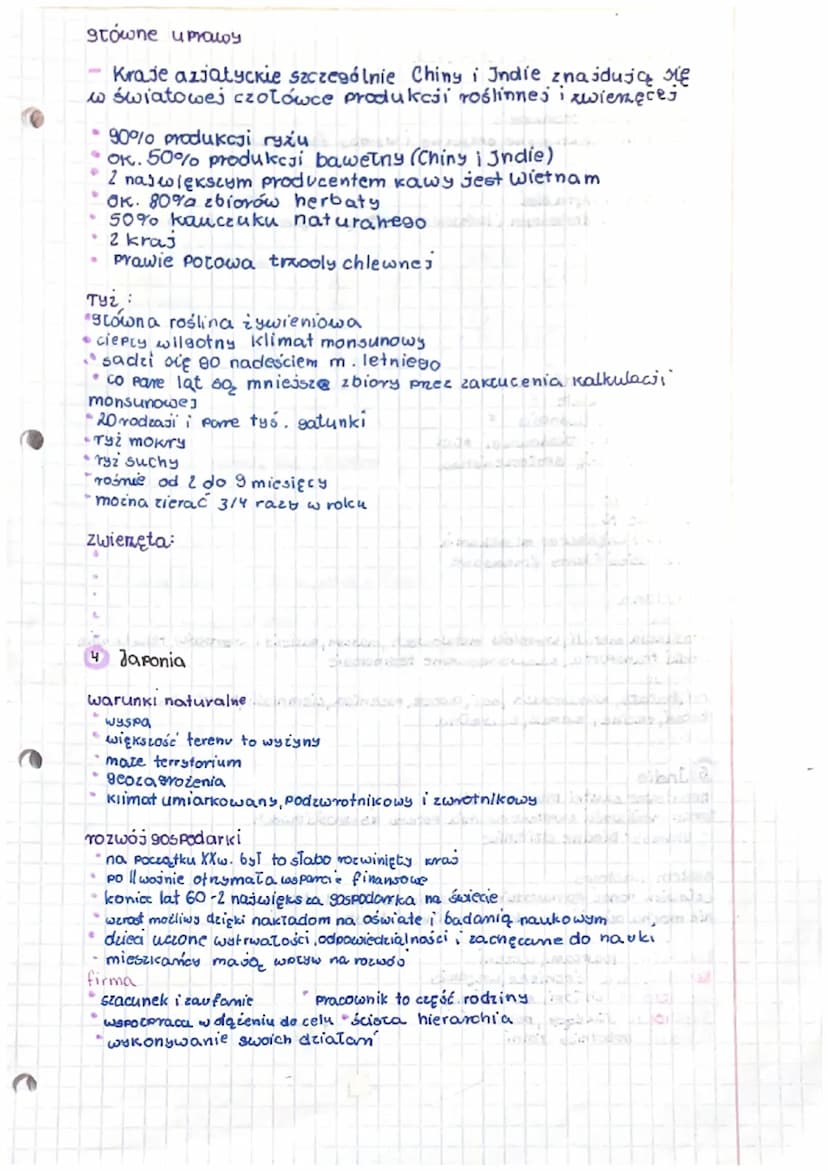 główne uprawy
- Kraje azjatyckie szczególnie Chiny i Indie znajdują się
w światowej czołówce produkcji roślinnej i zwierzęcej
• 90% produkcji ryżu
• ok. 50% produkcji bawełny (Chiny i Indie)
• 2 największym producentem kawy jest Wietnam
• ok. 80% zbiorów herbaty
• 50% kauczuku naturalnego
• 2 kraj
• prawie połowa trzody chlewnej
ryż:
• główna roślina żywieniowa
• ciepły wilgotny klimat monsunowy
• sadzi się go nadejściem m. letniego
• co parę lat są mniejsze zbiory przez zakłucenia kalkulacji
monsunowej
• 20 rodzaji i parre tyś. gatunki
• ryż mokry
• ryż suchy
• rośnie od 2 do 9 miesięcy
• można zierać 3/4 razy w roku
zwierzęta:
4 Japonia
warunki naturalne
• wyspa
• większość terenu to wyżyny
• małe terrytorium
• geozagrożenia
• klimat umiarkowany, podzwrotnikowy i zwrotnikowy
rozwój gospodarki
• na początku XXw. był to słabo rozwinięty kraj
• po II wojnie otrzymała wsparcie finansowe
• koniec lat 60 - 2 największa gospodarka na świecie
• wzrost możliwy dzięki nakładom na oświate i badanią naukowym
• dzieci uczone wytrwałości, odpowiedzialności i zachęcane do nauki
- mieszkańcy mają wpływ na rozwój
firma
• szacunek i zaufanie • Pracownik to część rodziny
• współpraca w dążeniu do celu • ścisła hierarchia
• wykonywanie swoich działań